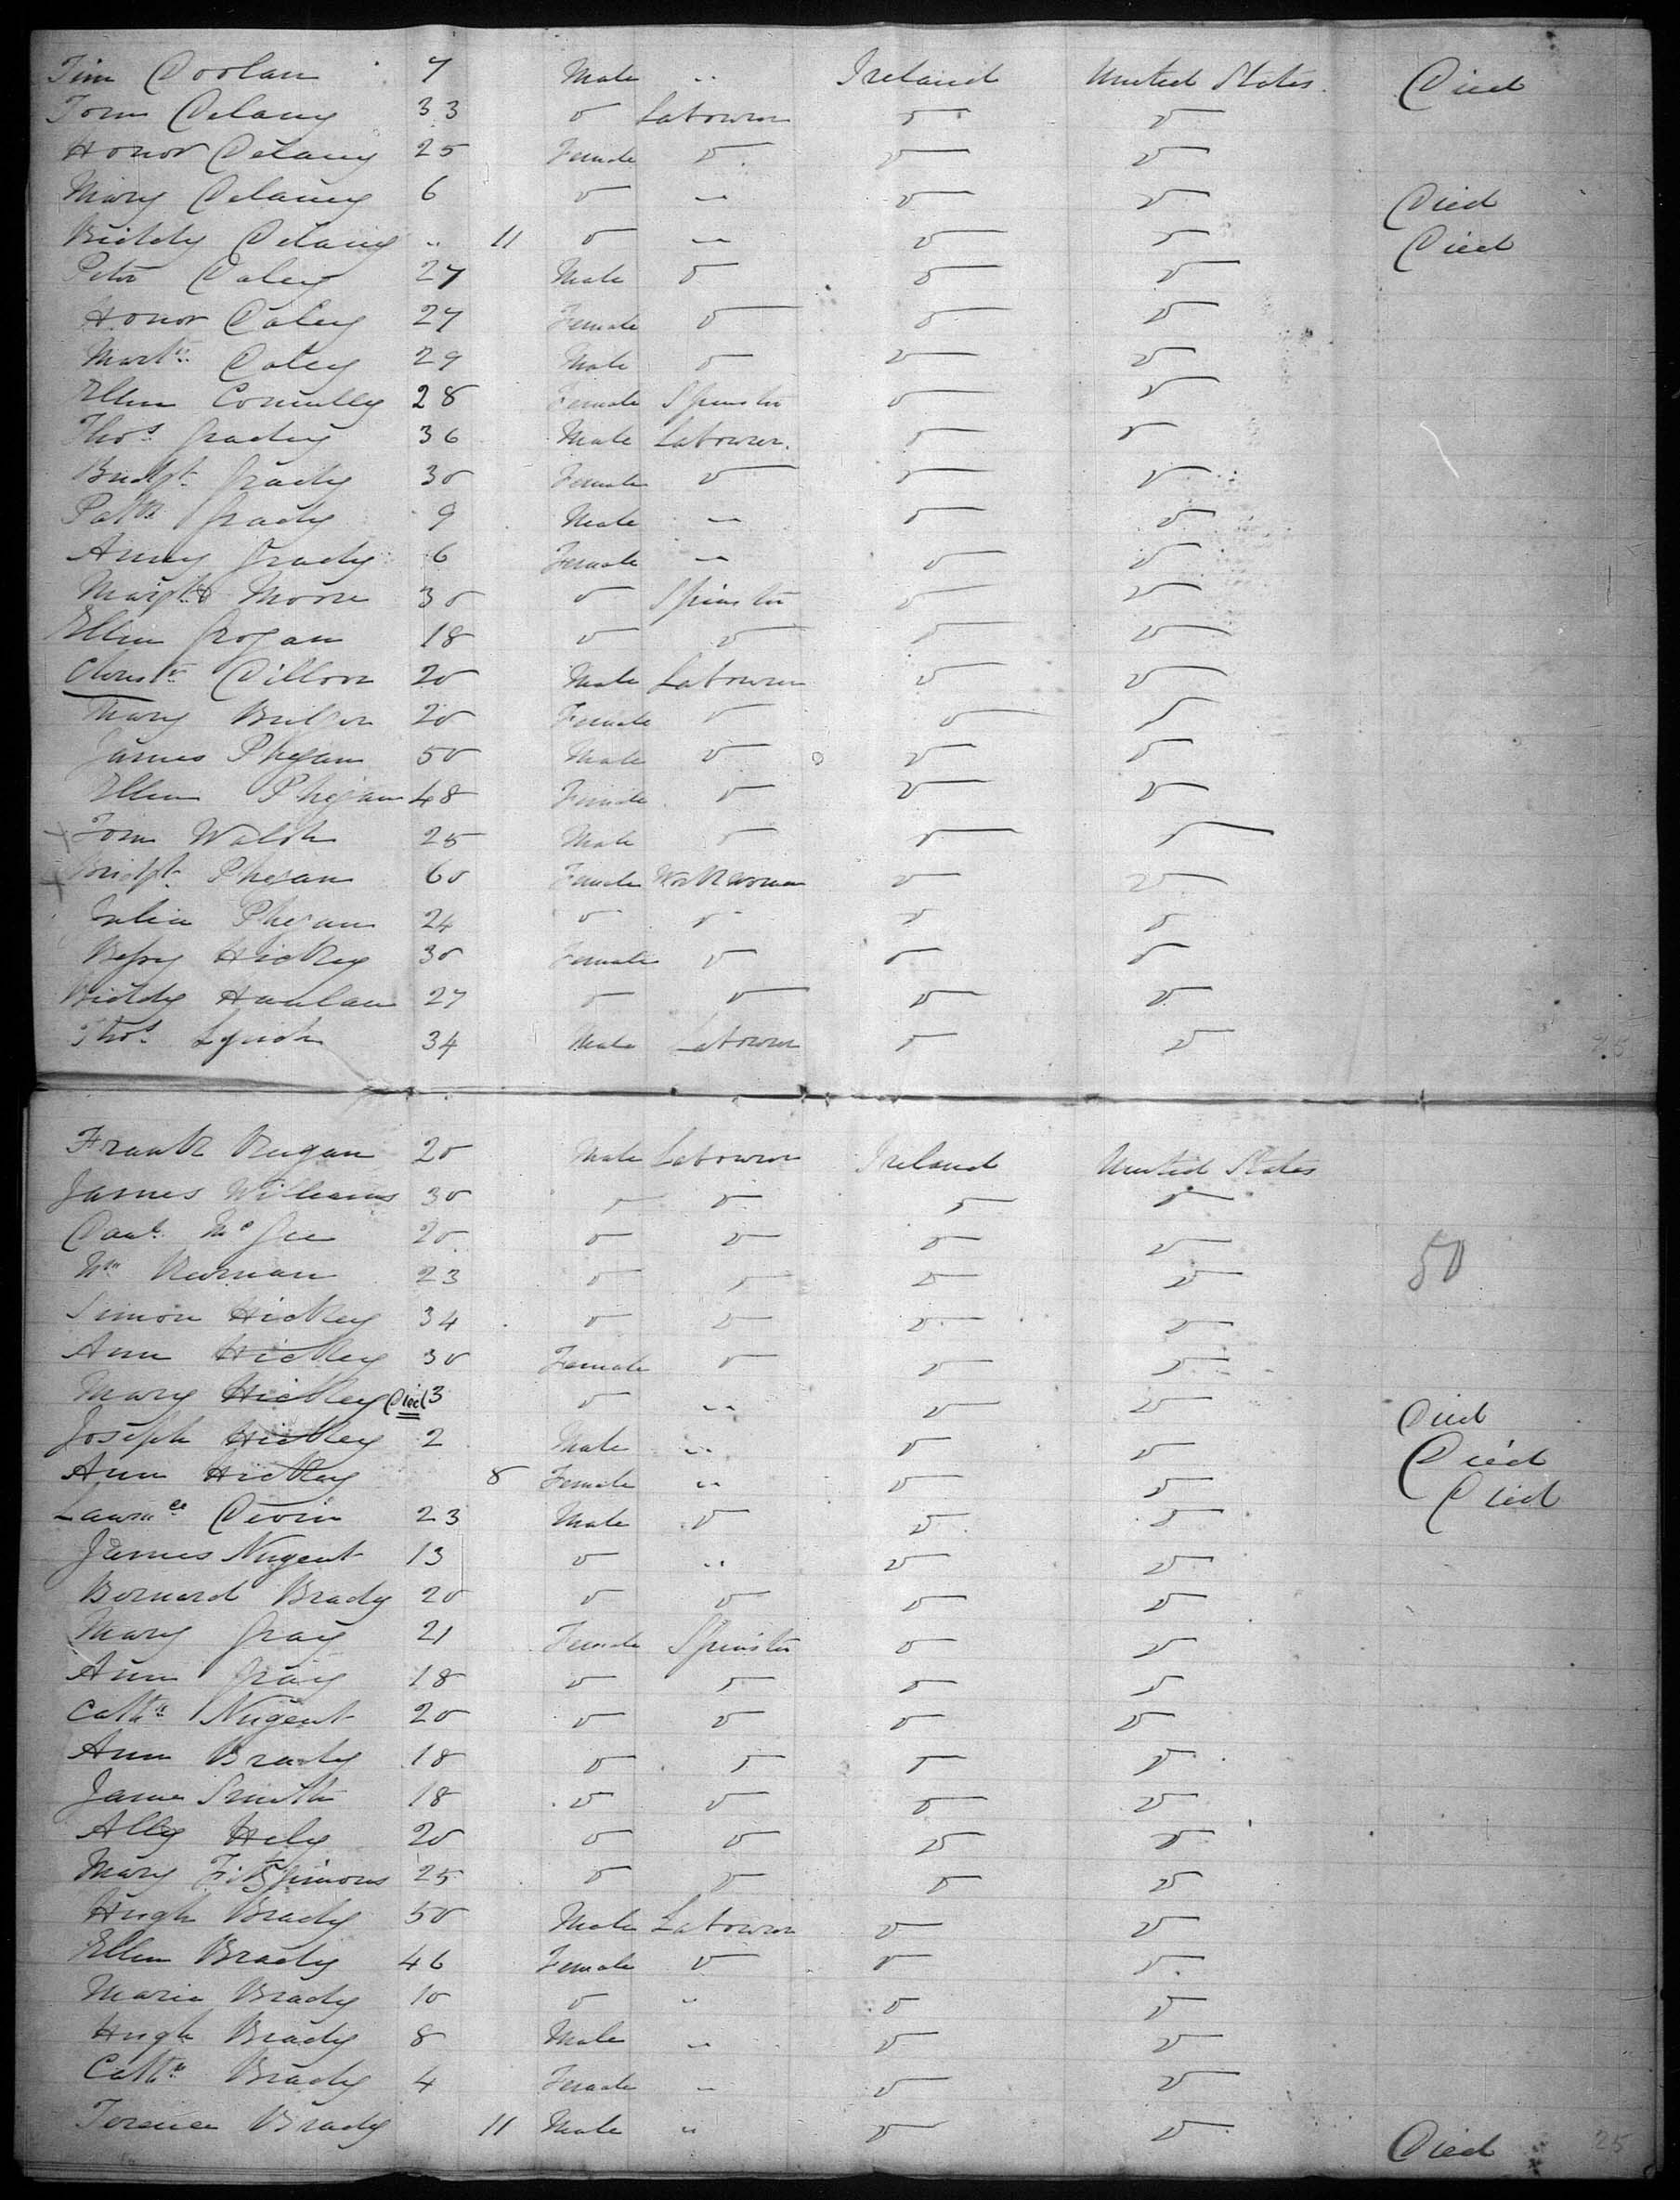 Tim Doolan 7 Male " Ireland United States Died
John Delany 33 do Labourer do do
Honor Delany 25 Female do do do
Mary Delany 6 do " do do Died
Biddy Delany " 11 do " do do Died
Peter Daley 27 Male do do do
Honor Daley 27 Female do do do
Martn Daley 29 Male do do do
Ellen Connelly 28 Female Spinster do do
Thos Grady 36 Male Labourer do do
Bridgt Grady 30 Female do do do
Patk Grady 9 Male " do do
Anny Grady 6 Female " do do
Margt Moore 30 do Spinster do do
Ellen Grogan 18 do do do do
Christr Dillon 20 Male Labourer do do
Mary 20 Female do do do
James Phegan 50 Male do do do
Ellen Phegan 48 Female do do do
John Walsh 25 Male do do do
Bridgt Phegan 60 Female Workwoman do do
Julia Phegan 24 do do do do
Bessy Hickey 30 Female do do do
Biddy Hanlan 27 do do do do
Thos Lynch 34 Male Labourer do do
25
Frank Rugan 20 Male Labourer Ireland United States
James Williams 30 do do do do
Danl McGee 20 do do do do 50
Wm 23 do do do do
Simon Hickey 34 do do do do
Ann Hickey 30 Female do do do
Mary Hickey Died 3 do " do do Died
Joseph Hickey 2 Male " do do Died
Ann Hickey 8 Female " do do Died
Lawrnce Devin 23 Male do do do
James Nugent 13 do " do do
Bernard Brady 20 do do do do
Mary Gray 21 Female Spinster do do
Ann Gray 18 do do do do
Cathn Nugent 20 do do do do
Ann Brady 18 do do do do
Jane Smith 18 do do do do
Ally Hely 20 do do do do
Mary Fitzsimons 25 do do do do
Hugh Brady 50 Male Labourer do do
Ellen Brady 46 Female do do do
Maria Brady 10 do " do do
Hugh Brady 8 Male " do do
Cathn Brady 4 Female " do do
Terence Brady 11 Male " do do Died 25